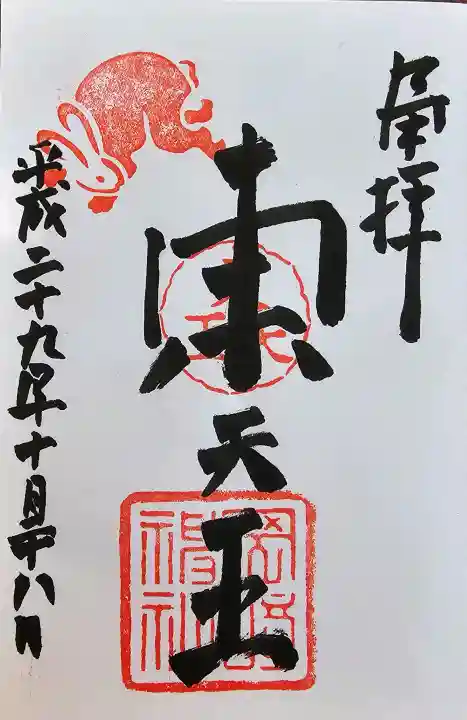 奉拝
東天王
岡崎神社
平成二十九年十月廿八日